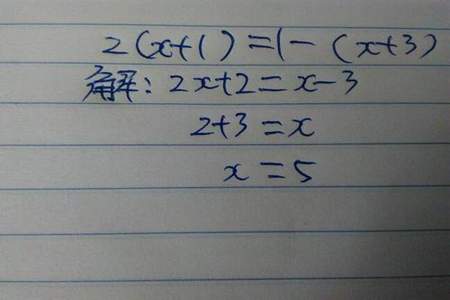 2(x+1)=1-(x+3)
解：2x+2=x-3
2+3=x
x=5